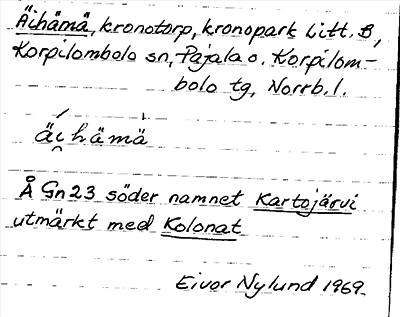 Äihämä, kronotorp, kronopark Litt. B,
Korpilombolo sn, Pajala o. Korpilom-
bolo tg, Norrb. l.
äi̯hämä
Å Gn 23 söder namnet Kartojärvi
utmärkt med Kolonat
Eivor Nylund 1969.